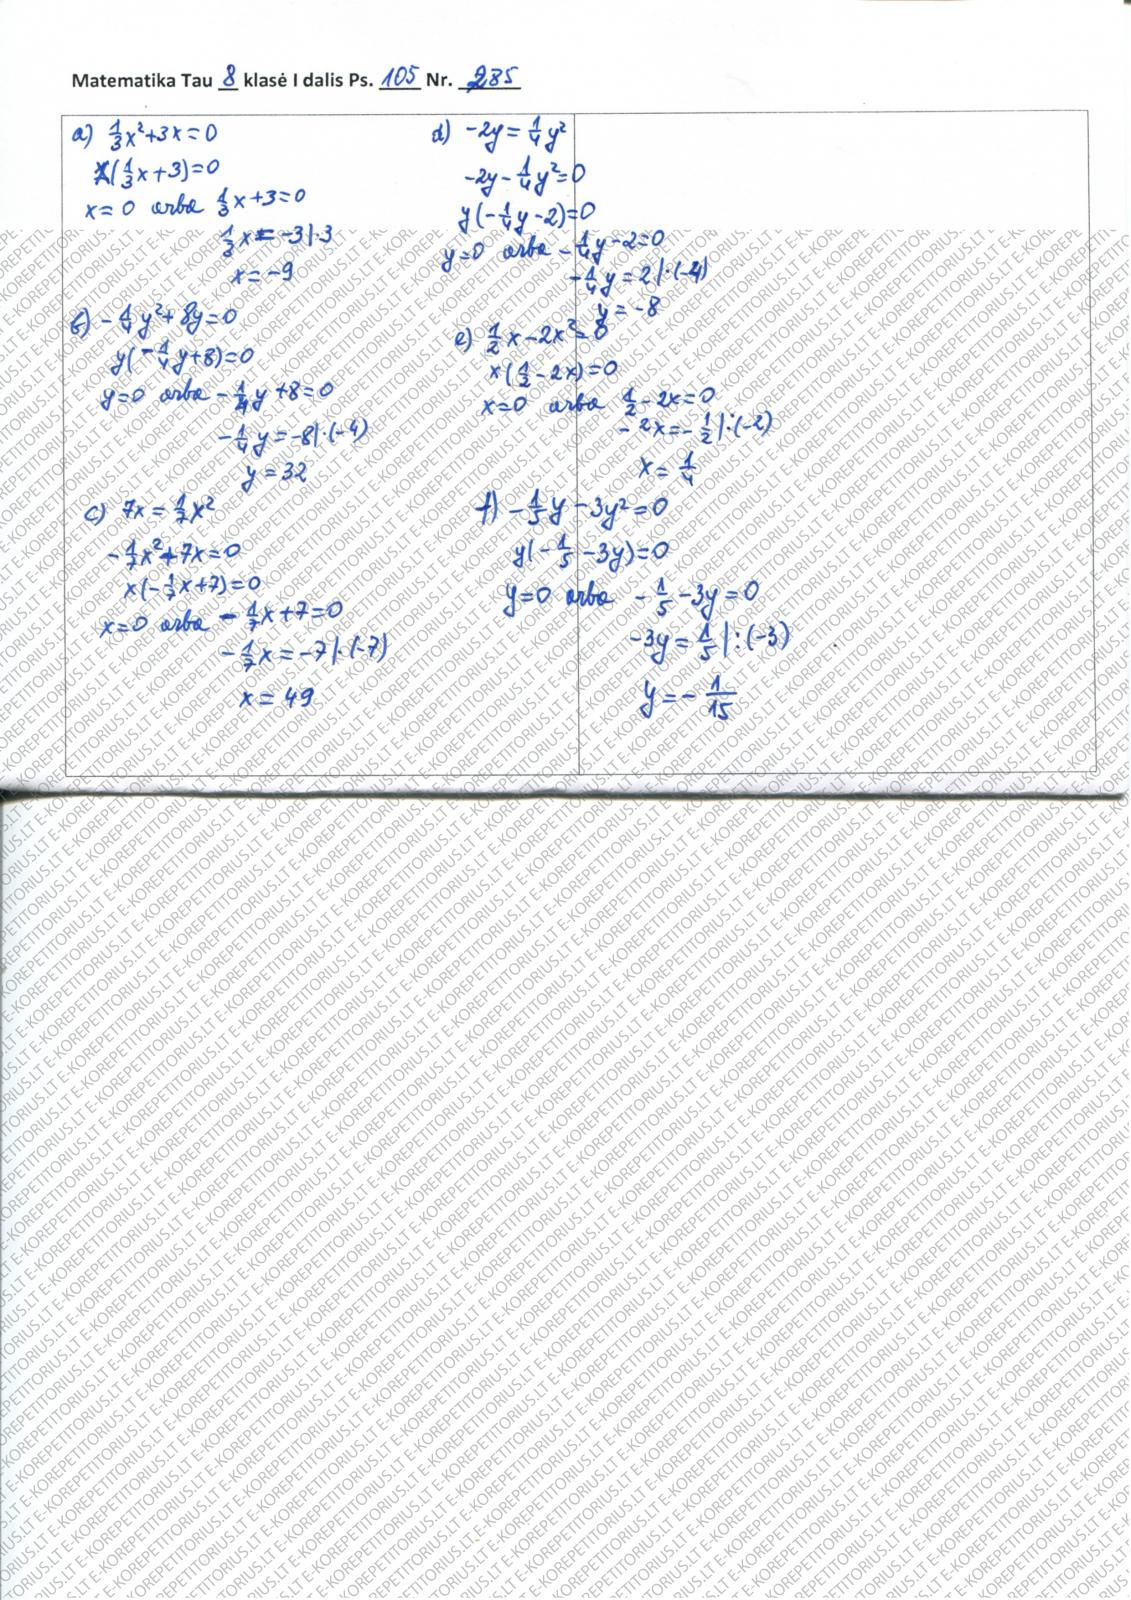 Matematika Tau 8 klasė I dalis Ps. 105 Nr. 285
a) 1/3x²+3x=0
x(1/3x+3)=0
x=0 arba 1/3x+3=0
1/3x=-3|·3
x=-9
b) -1/4y²+8y=0
y(-1/4y+8)=0
y=0 arba -1/4y+8=0
-1/4y=-8|·(-4)
y=32
c) 7x=1/7x²
-1/7x²+7x=0
x(-1/7x+7)=0
x=0 arba -1/7x+7=0
-1/7x=-7|·(-7)
x=49
d) -2y=1/4y²
-2y-1/4y²=0
y(-1/4y-2)=0
y=0 arba -1/4y-2=0
-1/4y=2|·(-4)
y=-8
e) 1/2x-2x²=0
x(1/2-2x)=0
x=0 arba 1/2-2x=0
-2x=-1/2|:(-2)
x=1/4
f) -1/5y-3y²=0
y(-1/5-3y)=0
y=0 arba -1/5-3y=0
-3y=1/5|:(-3)
y=-1/15
E-KOREPETITORIUS.LT